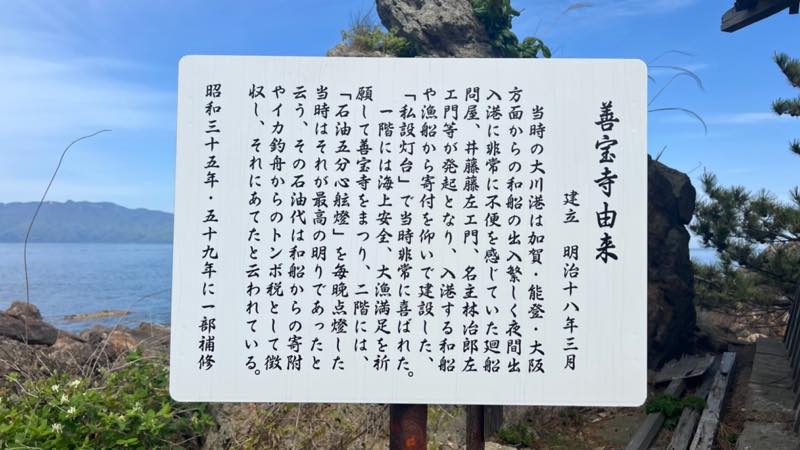 善宝寺由来
建立　明治十八年三月
当時の大川港は加賀・能登・大阪
方面からの和船の出入繁しく夜間出
入港に非常に不便を感じていた廻船
問屋、井藤藤左エ門、名主林治郎左
エ門等が発起となり、入港する和船
や漁船から寄付を仰いで建設した、
「私設灯台」で当時非常に喜ばれた。
一階には海上安全、大漁満足を祈
願して善宝寺をまつり、二階には、
「石油五分心舷燈」を毎晩点燈した
当時はそれが最高の明りであったと
云う、その石油代は和船からの寄附
やイカ釣舟からのトンボ税として徴
収し、それにあてたと云われている。
昭和三十五年・五十九年に一部補修